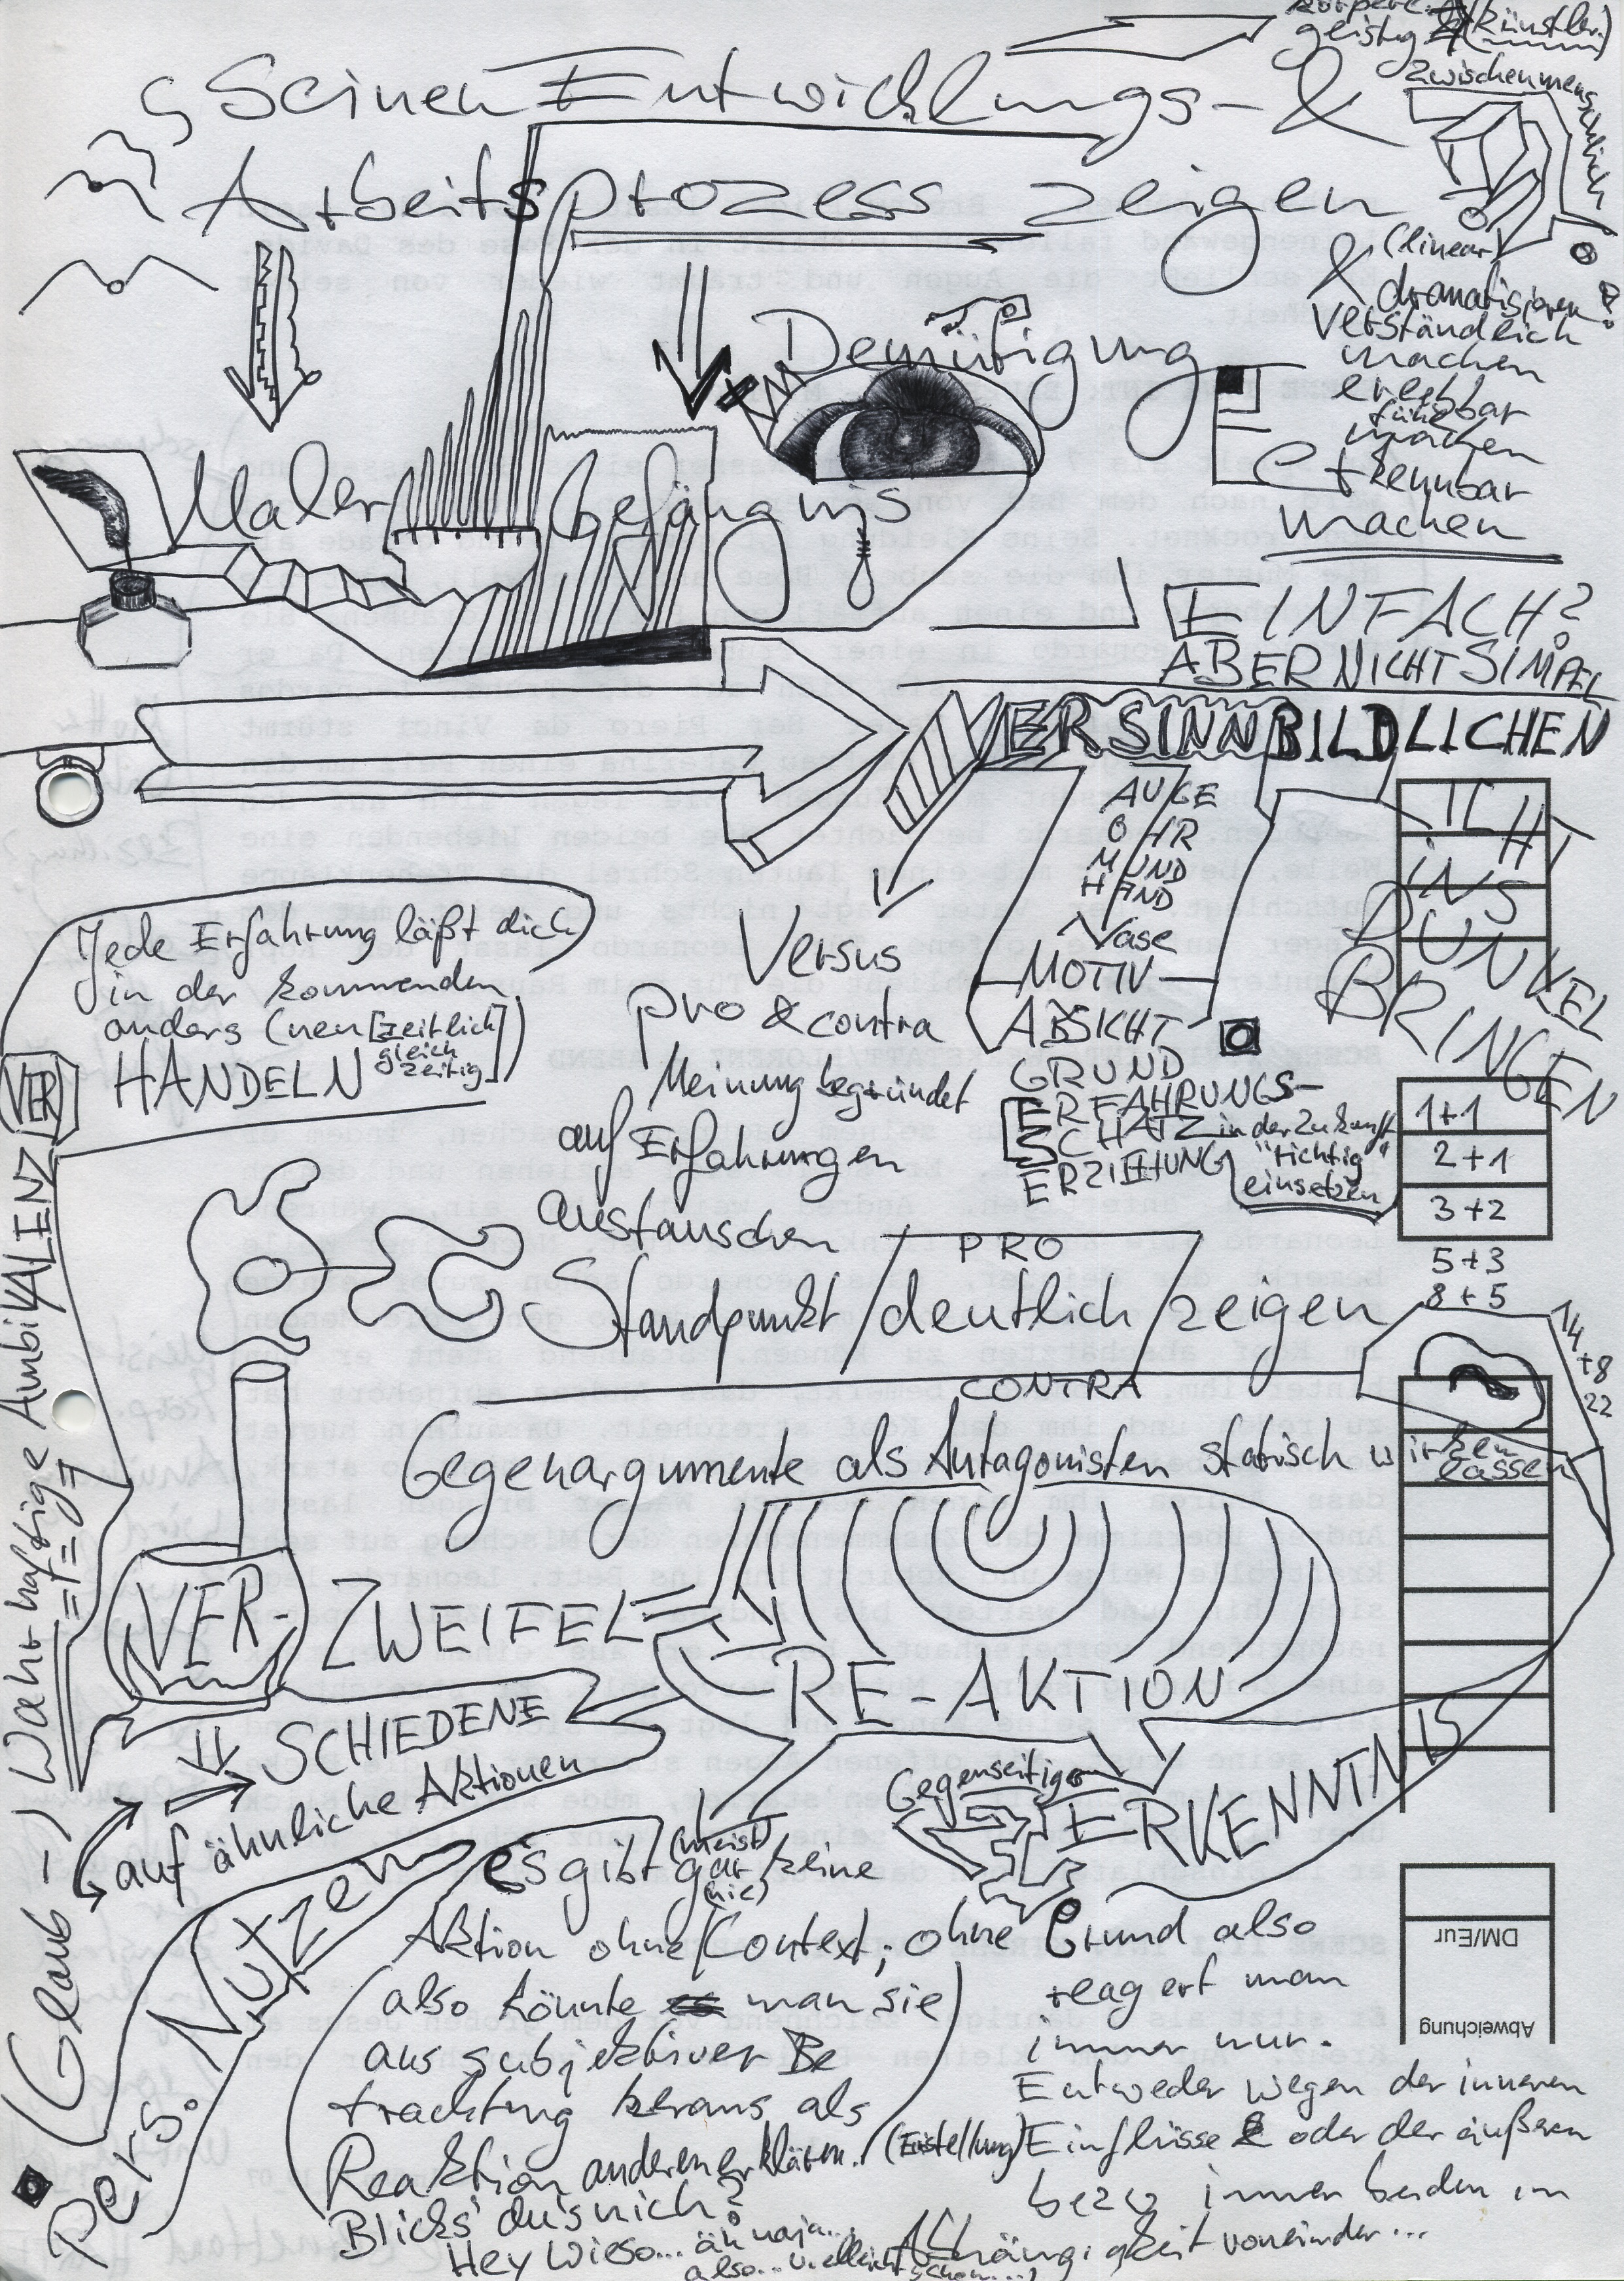 körperl.
geistig & (künstler.)
zwischenmenschlich
Seinen Entwicklungs- &
Arbeitsprozess zeigen
(linear)
& dramatisieren
verständlich
machen
erlebbar
fühlbar
machen
erkennbar
machen
Demütigung
Maler Gefängnis
EINFACH?
ABER NICHT SIMPEL
VERSINNBILDLICHEN
AUGE
OHR
MUND
HAND
Nase
MOTIV
ABSICHT
GRUND
ERFAHRUNGS-
SCHATZ in der Zukunft
ERZIEHUNG "richtig"
einsetzen
LICHT
INS
DUNKEL
BRINGEN
Jede Erfahrung läßt dich
in der kommenden
anders (neu [zeitlich]
gleich
zeitig])
VER HANDELN
Versus
pro & contra
Meinung begründet
auf Erfahrungen
austauschen
1+1
2+1
3+2
5+3
8+5
14
+8
22
PRO
Standpunkt deutlich zeigen
CONTRA
Gegenargumente als Antagonisten statisch wirken
lassen
VER-ZWEIFEL
RE-AKTION
SCHIEDENE
auf ähnliche Aktionen
Gegenseitige
ERKENNTNIS
(Glaub-) Wahrhaftige AmbiVALENZ
Pers. Nutzen
es gibt gar keine
(meist)
(nie)
Aktion ohne Context; ohne Grund also
also könnte man sie
aus subjektiver Be
trachtung heraus als
Reaktion anderen erklären.
Blicks' du's nich?
Hey Wieso... äh naja...
also... vielleicht schon...)
reagiert man
immer nur.
Entweder wegen der inneren
(Einstellung) Einflüsse oder der äußeren
bezw immer beiden in
Abhängigkeit voneinander...
DM/Eur
Abweichung